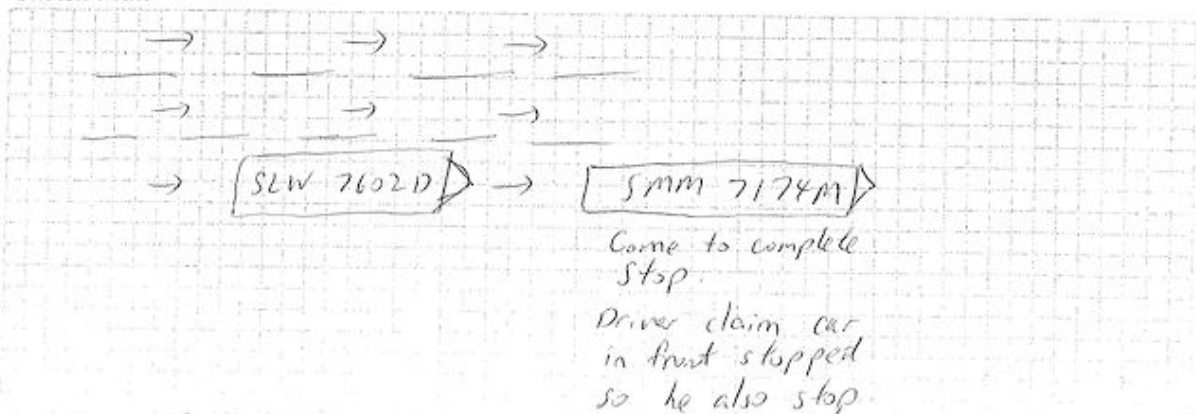 SLW 7602D
SMM 7174M
Come to complete
Stop.
Driver claim car
in front stopped
so he also stop.